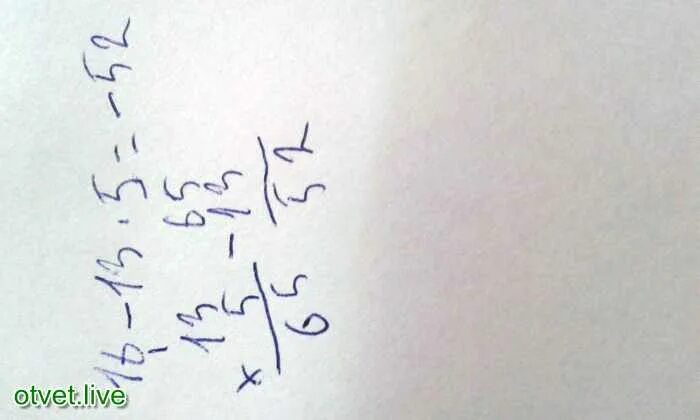 16 - 13 · 5 = -52
13 65
× 5 - 13
65 52
otvet.live